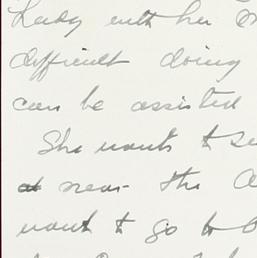 Lady with her
difficult doing
can be assisted
She wants to se
near the
want to go to